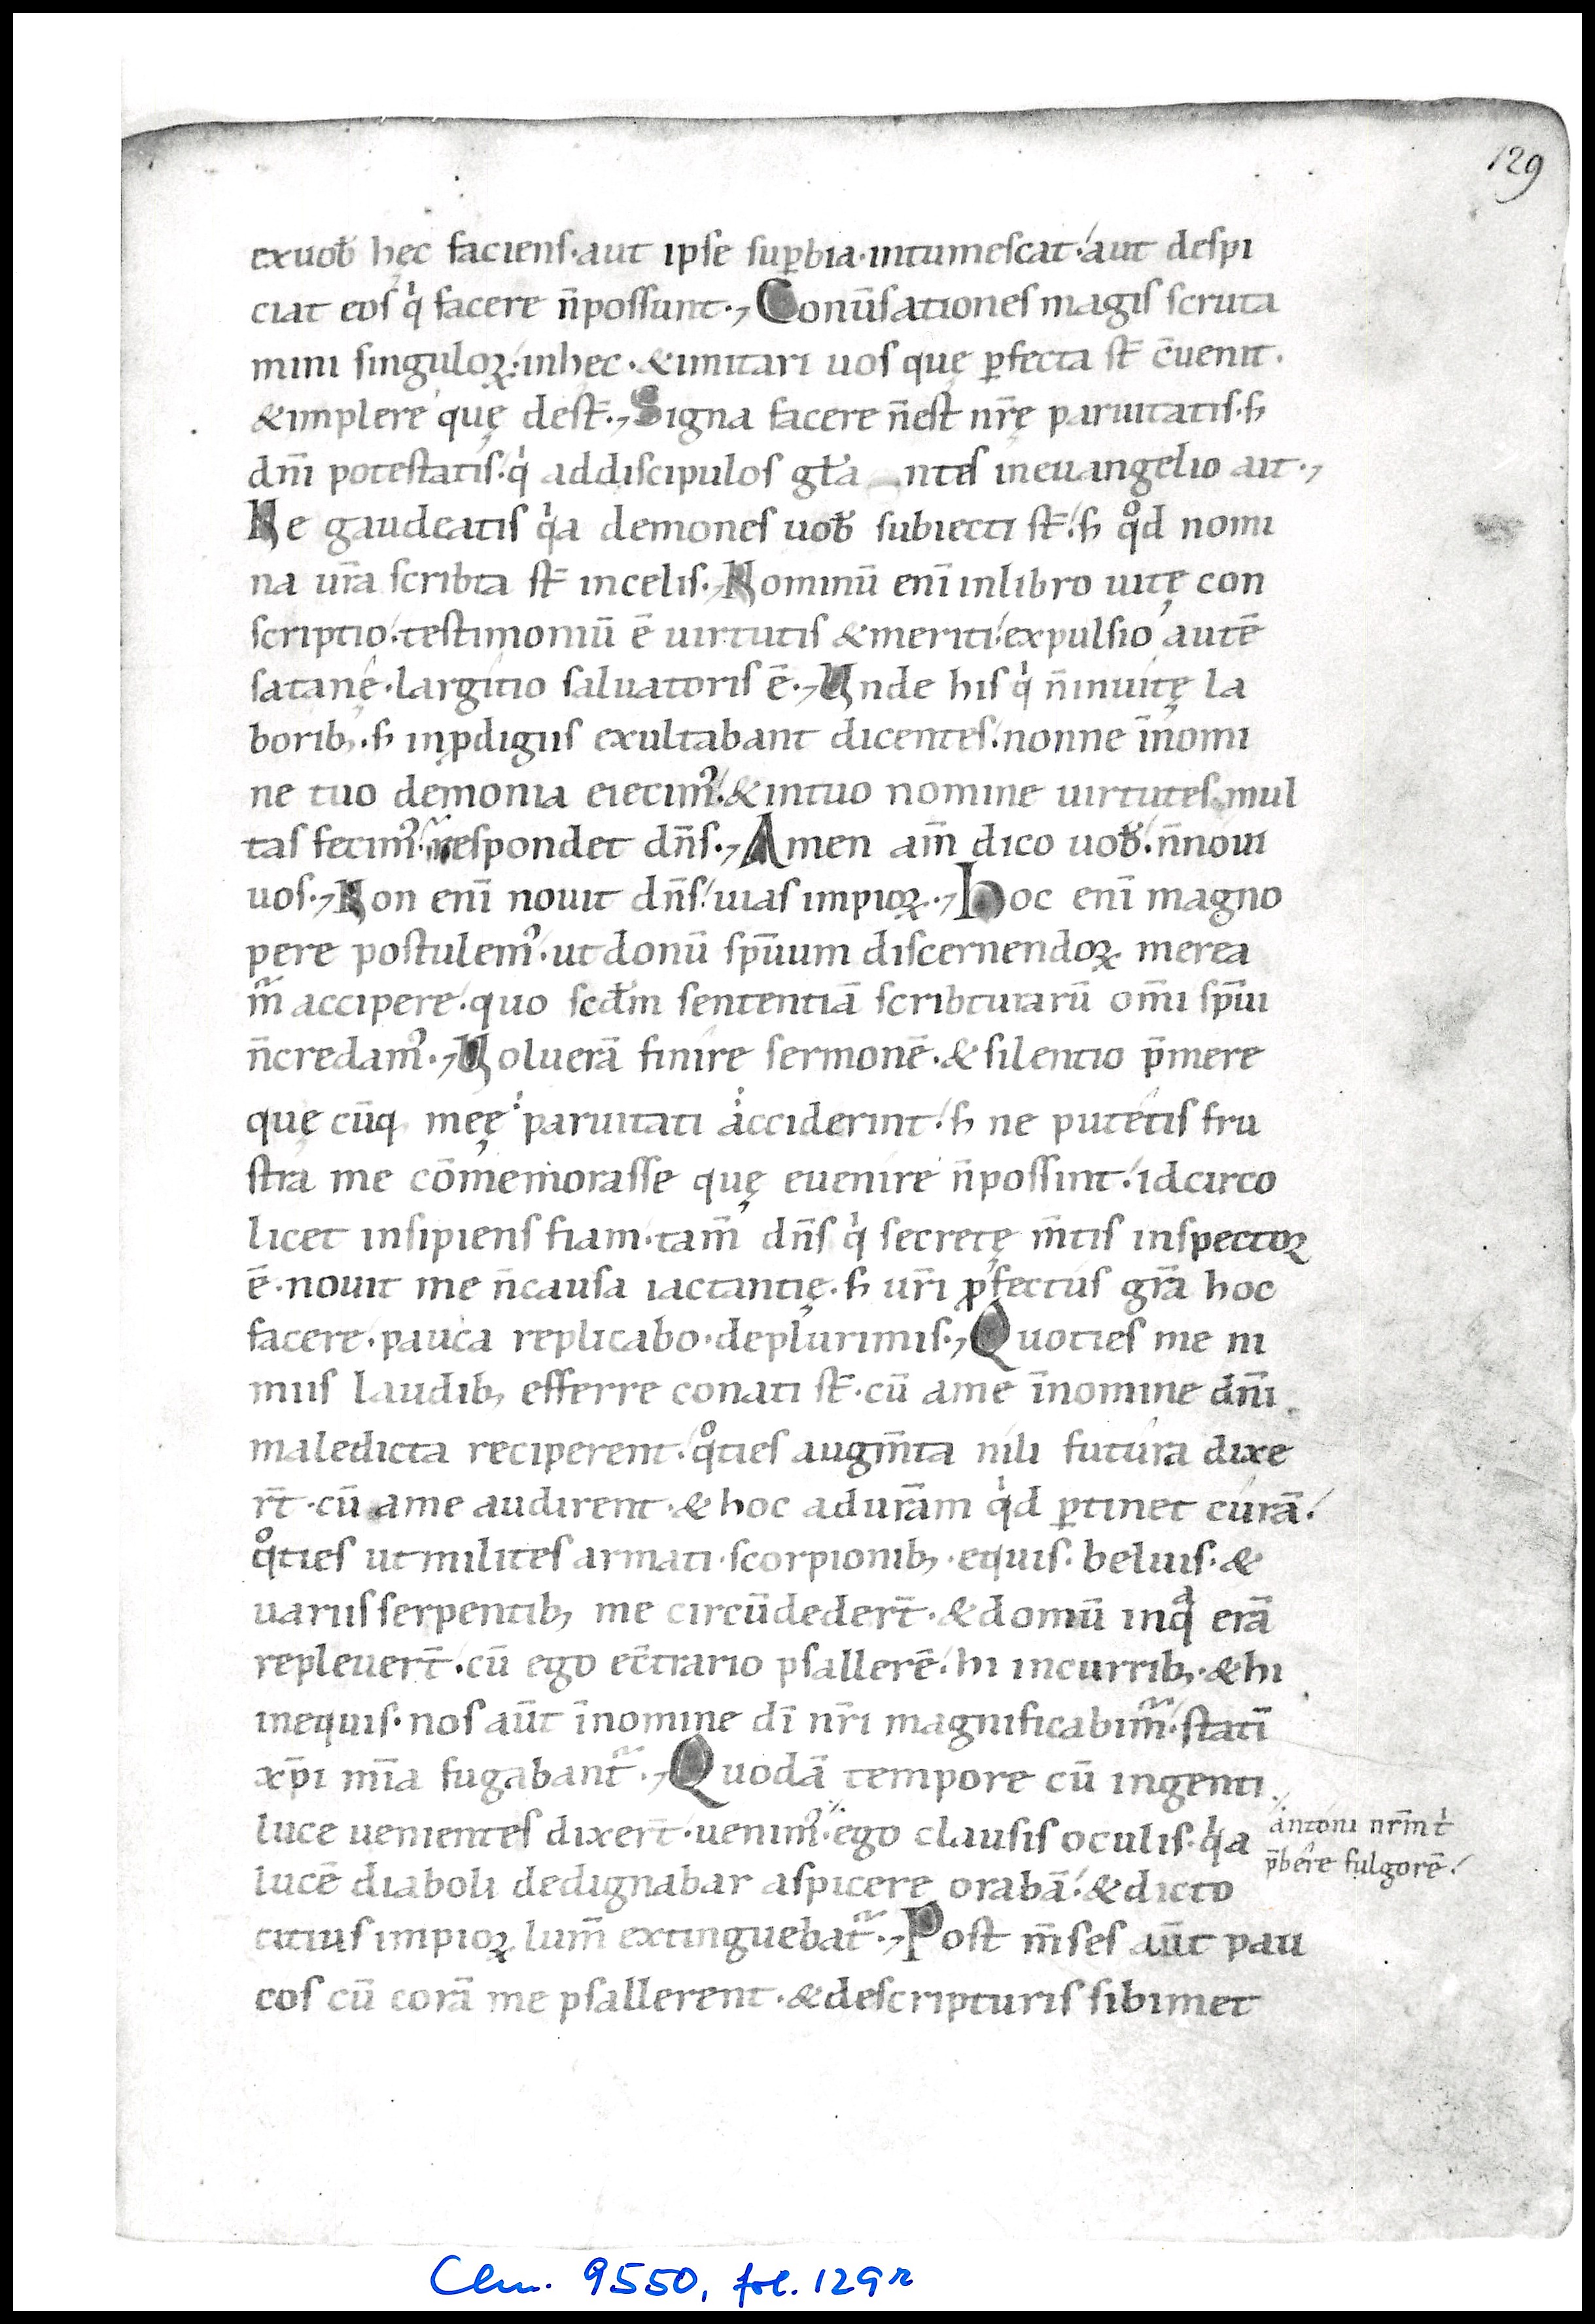 129
exuob̄ hęc faciens·aut ipse sup̱bia·intumescat·aut despi
ciat eos q̇ facere n̄possunt·, Conūsationes magis scruta
mini singuloꝝ·inhęc·&imitari uos quę ꝑfecta st̄ c̄uenit·
&implere quę dest̄·, Signa facere n̄est nr̄ę paruitatis·ẜ
dn̄i potestatis·q̇ addiscipulos gł̄a ntes ineuangelio ait·,
Ne gaudeatis q̇a demones uob̄ subiecti st̄·ẜ qͦd nomi
na ur̄a scribta st̄ incelis·, Nominū eni̅ inlibro uitę con
scriptio·testimoniū ē uirtutis &meriti·expulsio autē
satanę·largitio saluatoris ē·, Unde his q̇ n̄inuitę la
borib;·ẜ inꝓdigiis exultabant dicentes·nonne īnomi
ne tuo demonia eiecimꝰ·&intuo nomine uirtutes mul
tas fecimꝰ·respondet dn̄s·, Amen am̄ dico uob̄·n̄noui
uos·, Non eni̅ nouit dn̄s·uias impioꝝ·, Hoc eni̅ magno
pere postulemꝰ·ut donū sp̄uum discernendoꝝ merea
m̄ accipere·quo scd̄m sententiā scribturarū om̄i sp̄ui
n̄credamꝰ·, Uoluerā finire sermonē·&silentio p̄mere
quę cūq; meę paruitati acciderint·ẜ ne putetis fru
stra me cōmemorasse quę euenire n̄possint·idcirco
licet insipiens fiam·tam̄ dn̄s q̇ secretę m̄tis inspectoꝝ
ē·nouit me n̄causa iactantię·ẜ ur̄i ꝓfectus gr̄a hoc
facere·pauca replicabo·deplurimis·, Quoties me ni
miis laudib; efferre conati st̄·cū ame īnomine dn̄i
maledicta reciperent·qͦties augm̄ta nili futura dixe
rt̄·cū ame audirent·&hoc adur̄am q̇d ꝑtinet curā·
qͦties utmilites armati·scorpionib;·equis·beluis·&
uariisserpentib; me circūdedert̄·&domū inqᵃ erā
repleuert̄·cū ego ec̄trario psallerē·hi incurrib;·&hi
inequis·nos aūt īnomine dī nr̄i magnificabim̄·statī
xp̄i mīa fugabant̄·, Quodā tempore cū ingenti
luce uenientes dixert̄·uenimꝰ·ego clausis oculis·q̇a
antoni nr̄m t̄
p̄bere fulgorē·
lucē diaboli dedignabar aspicere orabā·&dicto
citius impioꝝ lum̄ extinguebat̄·, Post m̄ses aūt pau
cos cū corā me psallerent·&descripturis sibimet
Clm. 9550, fol. 129r